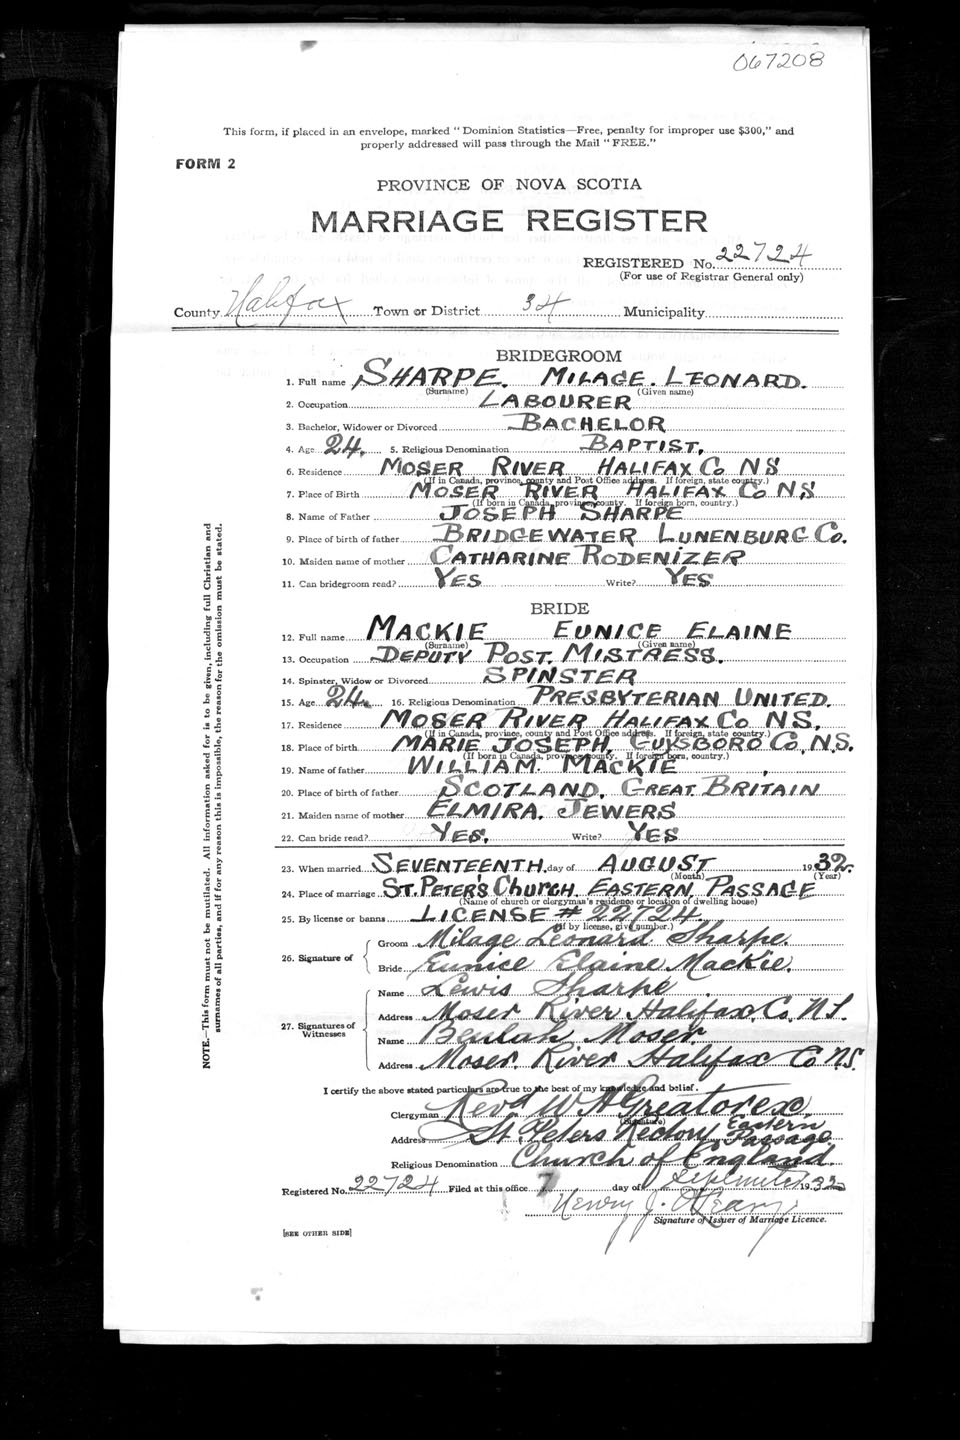 067208
This form, if placed in an envelope, marked " Dominion Statistics—Free, penalty for improper use $300," and
properly addressed will pass through the Mail " FREE."
FORM 2
PROVINCE OF NOVA SCOTIA
MARRIAGE REGISTER
REGISTERED No. 22724
(For use of Registrar General only)
County Halifax Town or District 34 Municipality
BRIDEGROOM
1. Full name SHARPE. MILAGE. LEONARD.
(Surname) (Given name)
2. Occupation LABOURER
3. Bachelor, Widower or Divorced BACHELOR
4. Age 24. 5. Religious Denomination BAPTIST.
6. Residence MOSER RIVER HALIFAX CO NS
(If in Canada, province, county and Post Office address. If foreign, state country.)
7. Place of Birth MOSER RIVER HALIFAX CO N,S
(If born in Canada, province, county. If foreign born, country.)
8. Name of Father JOSEPH SHARPE
9. Place of birth of father BRIDGEWATER LUNENBURG CO.
10. Maiden name of mother CATHARINE RODENIZER
11. Can bridegroom read? YES Write? YES
BRIDE
12. Full name MACKIE EUNICE ELAINE
(Surname) (Given name)
13. Occupation DEPUTY POST. MISTRESS.
14. Spinster, Widow or Divorced SPINSTER
15. Age 24. 16. Religious Denomination PRESBYTERIAN UNITED.
17. Residence MOSER RIVER HALIFAX CO NS.
(If in Canada, province, county and Post Office address. If foreign, state country.)
18. Place of birth MARIE JOSEPH. GUYSBORO CO, N.S.
(If born in Canada, province, county. If foreign born, country.)
19. Name of father WILLIAM. MACKIE
20. Place of birth of father SCOTLAND. GREAT. BRITAIN
21. Maiden name of mother ELMIRA. JEWERS
22. Can bride read? YES. Write? YES
23. When married SEVENTEENTH. day of AUGUST 1932.
(Month) (Year)
24. Place of marriage ST. PETER'S CHURCH. EASTERN. PASSAGE
(Name of church or clergyman's residence or location of dwelling house)
25. By license or banns LICENSE # 22724.
(If by license, give number.)
26. Signature of Groom Milage Leonard Sharpe.
Bride Eunice Elaine Mackie.
27. Signatures of Witnesses Name Lewis Sharpe
Address Moser River Halifax. Co, N.S.
Name Beulah Moser.
Address Moser. River Halifax Co N.S.
I certify the above stated particulars are true to the best of my knowledge and belief.
Clergyman Revd W A Greatorex,
(Signature)
Address St, Peters Rectory Eastern Passage
Religious Denomination Church of England.
Registered No. 22724 Filed at this office 7 day of September 1932
Henry J. O'Leary
Signature of Issuer of Marriage Licence.
[SEE OTHER SIDE]
NOTE.—This form must not be mutilated. All information asked for is to be given, including full Christian and
surnames of all parties, and if for any reason this is impossible, the reason for the omission must be stated.